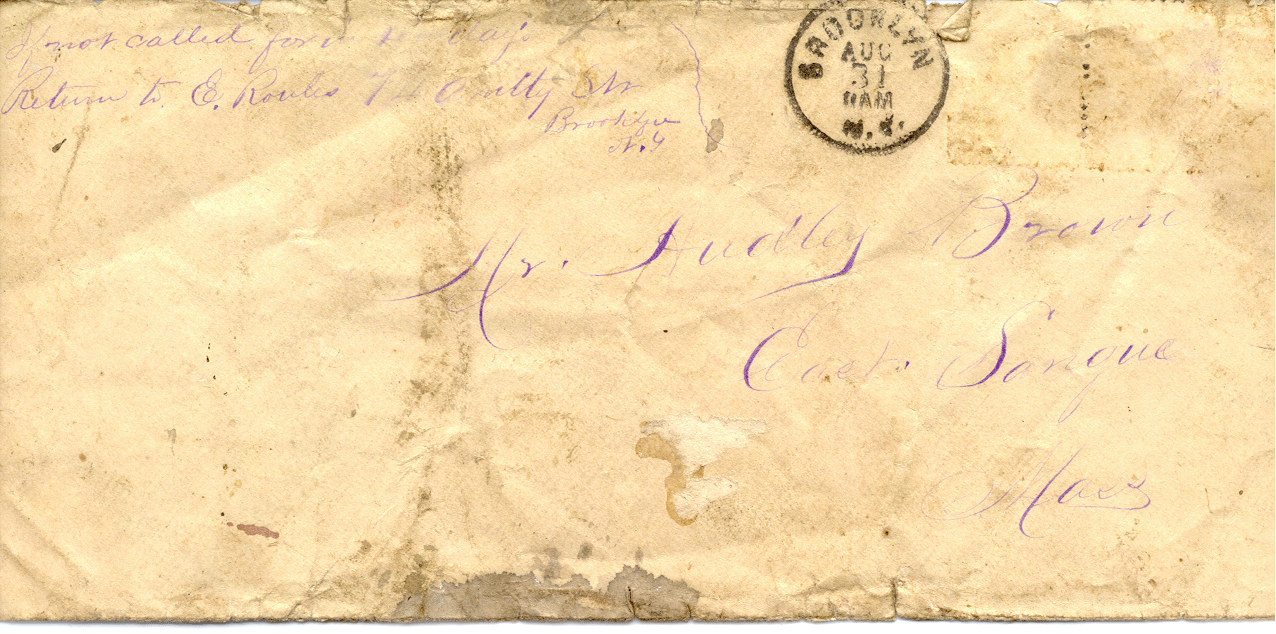 If not called for in days
Return to E. Routes 7 Amitty Str
Brooklyn
N.Y
BROOKLYN
AUG
31
AM
N.Y.
Mr. Audley Brown
East. Songue
Mass